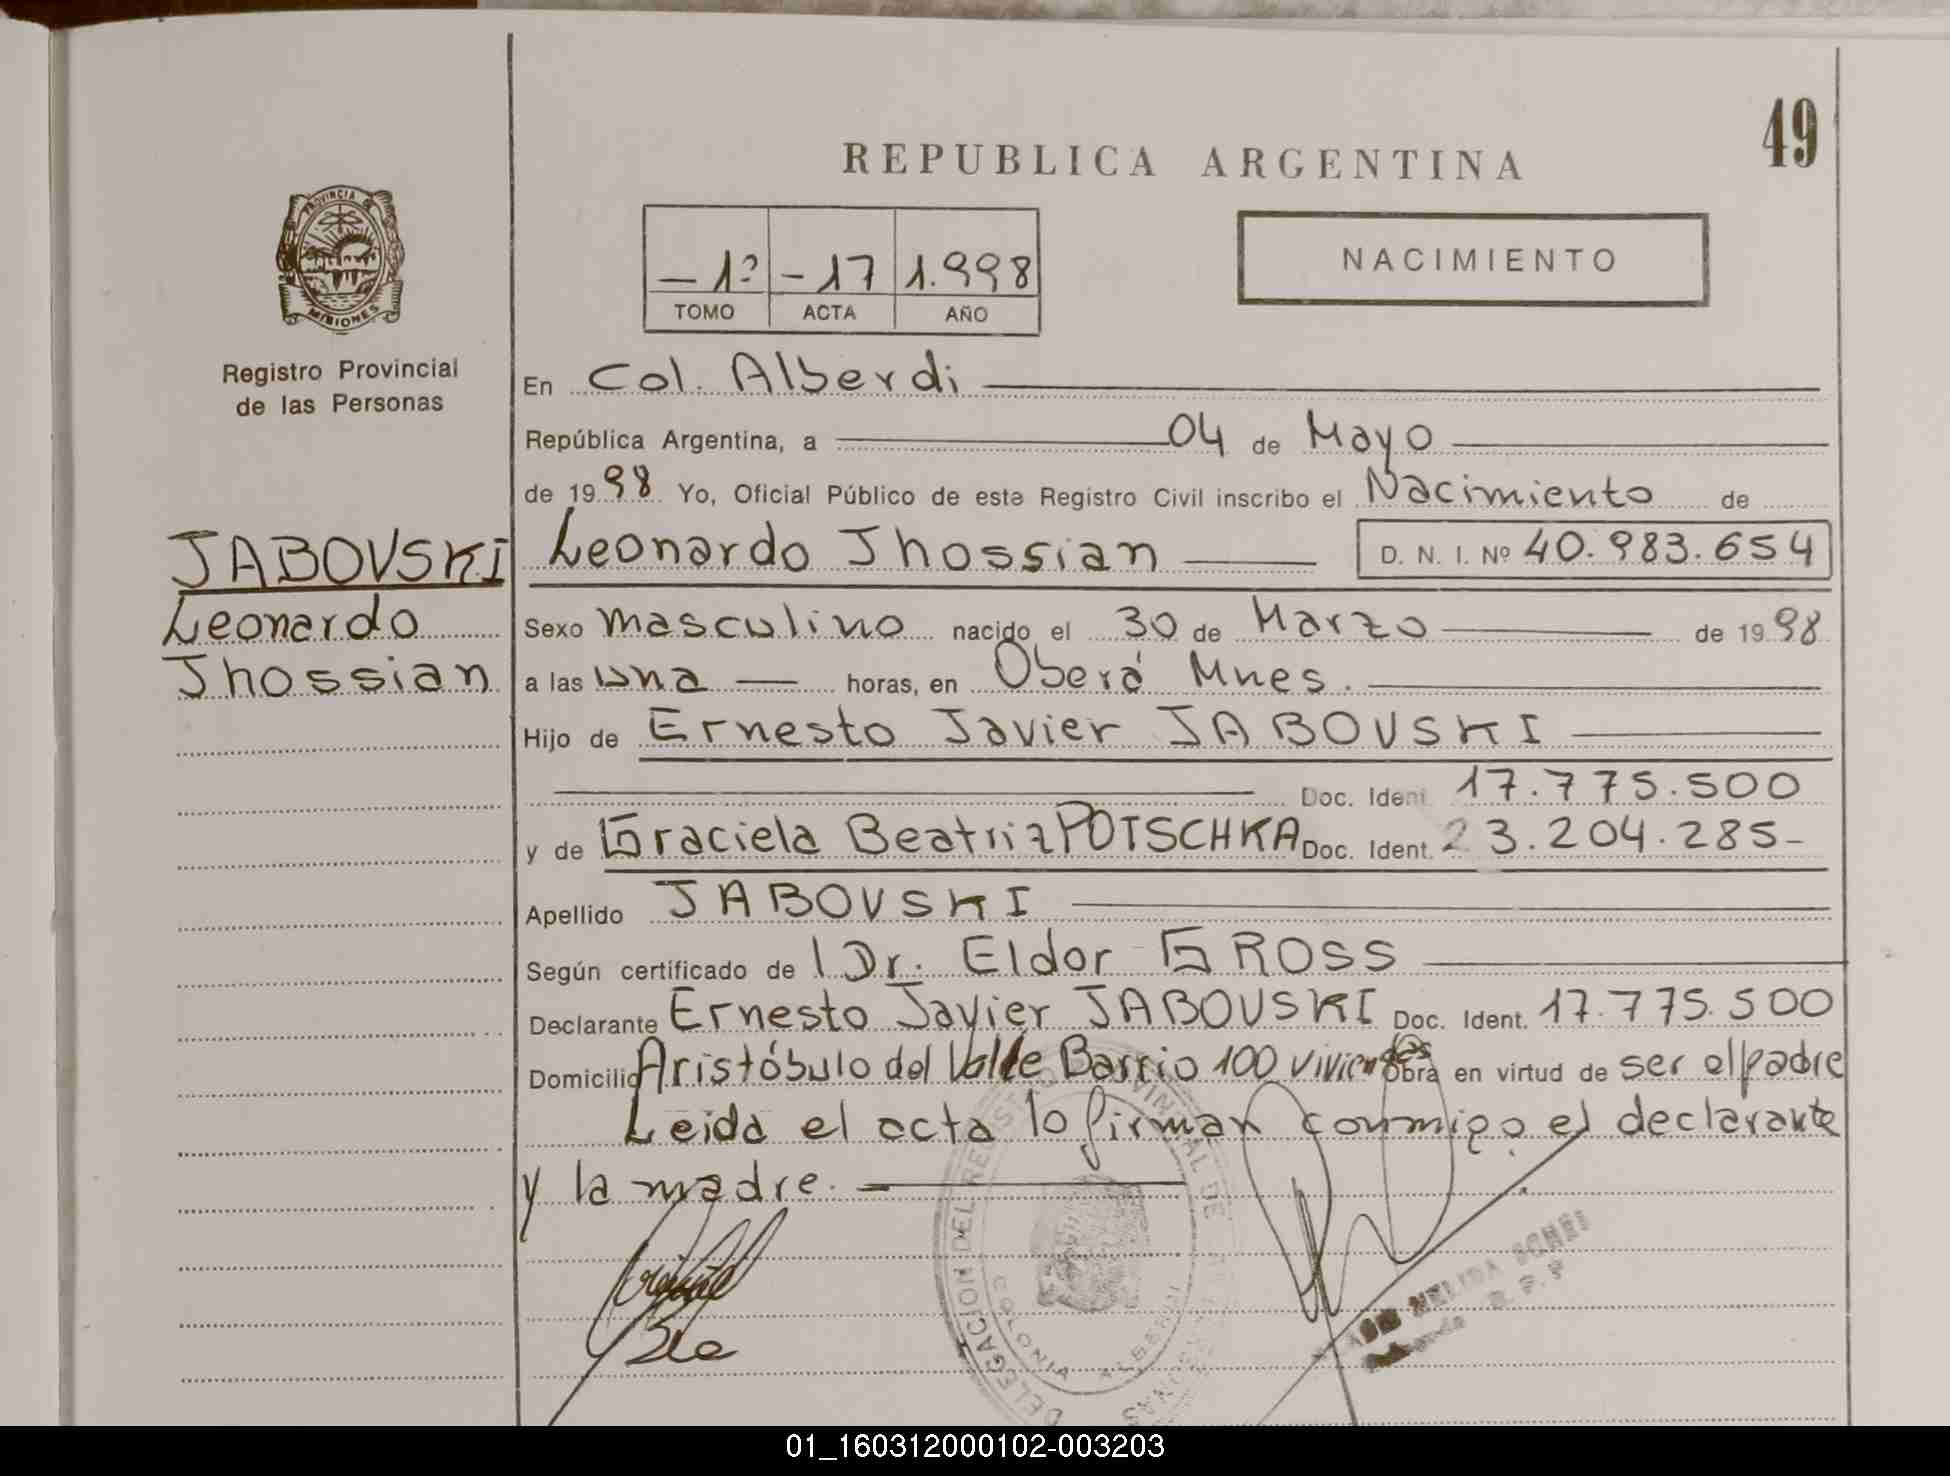 49
REPUBLICA ARGENTINA
PROVINCIA DE
MISIONES
Registro Provincial
de las Personas
– 1º – 17 1.998
TOMO ACTA AÑO
NACIMIENTO
En Col. Alberdi
República Argentina, a 04 de Mayo
de 1998 Yo, Oficial Público de este Registro Civil inscribo el Nacimiento de
JABOVSKI
Leonardo
Jhossian
Leonardo Jhossian D. N. I. Nº 40.983.654
Sexo masculino nacido el 30 de Marzo de 1998
a las una horas, en Oberá Mnes.
Hijo de Ernesto Javier JABOVSKI
Doc. Ident. 17.775.500
y de Graciela Beatriz POTSCHKA Doc. Ident. 23.204.285-
Apellido JABOVSKI
Según certificado de Dr. Eldor GROSS
Declarante Ernesto Javier JABOVSKI Doc. Ident. 17.775.500
Domicilio Aristóbulo del Valle Barrio 100 viviendas obra en virtud de ser el padre
Leida el acta lo firman conmigo el declarante
y la madre.
DELEGACION DEL REGISTRO PROVINCIAL DE
COLONIA ALBERDI
NELIDA
01_160312000102-003203